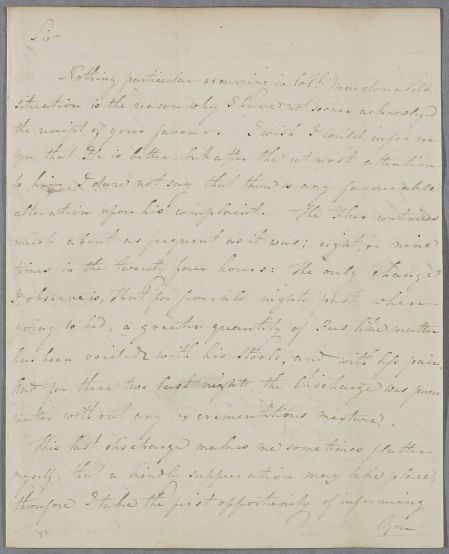 Sir
Nothing particular occurring in Coll. Macdonalds
situation is the reason why I have not sooner acknowledged
the receipt of your favour. I wish I could inform
you that He is better, but after the utmost attention
to him, I dare not say that there is any favourable
alteration upon his complaint. The Flux continues
much about as frequent as it was; eight, or nine
times in the twenty four hours: The only change
I observe is, that for several nights past, when
going to bed, a greater quantity of Pus like matter
has been voided with his Stools, and with less pain,
And for these two last nights, the discharge was pure
matter without any excrementitious mixture.
This last discharge makes me sometimes flatter
myself, that a kindly suppuration may take place,
therefore I take the first opportunity of informing
You